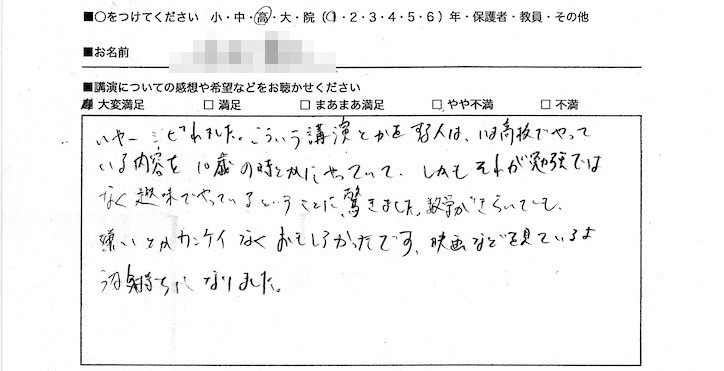 ■○をつけてください 小・中・高・大・院（1・2・3・4・5・6）年・保護者・教員・その他
■お名前
■講演についての感想や希望などをお聴かせください
■ 大変満足 □ 満足 □ まあまあ満足 □ やや不満 □ 不満
いやーシビれました。こういう講演とかをする人は、は高校でやって
いる内容を10歳の時とかにやっていて、しかもそれが勉強では
なく趣味でやっているということに、驚きました。数学がきらいでも、
嫌いとかカンケイなくおもしろかったです。映画などを見ているよ
うな気持ちになりました。